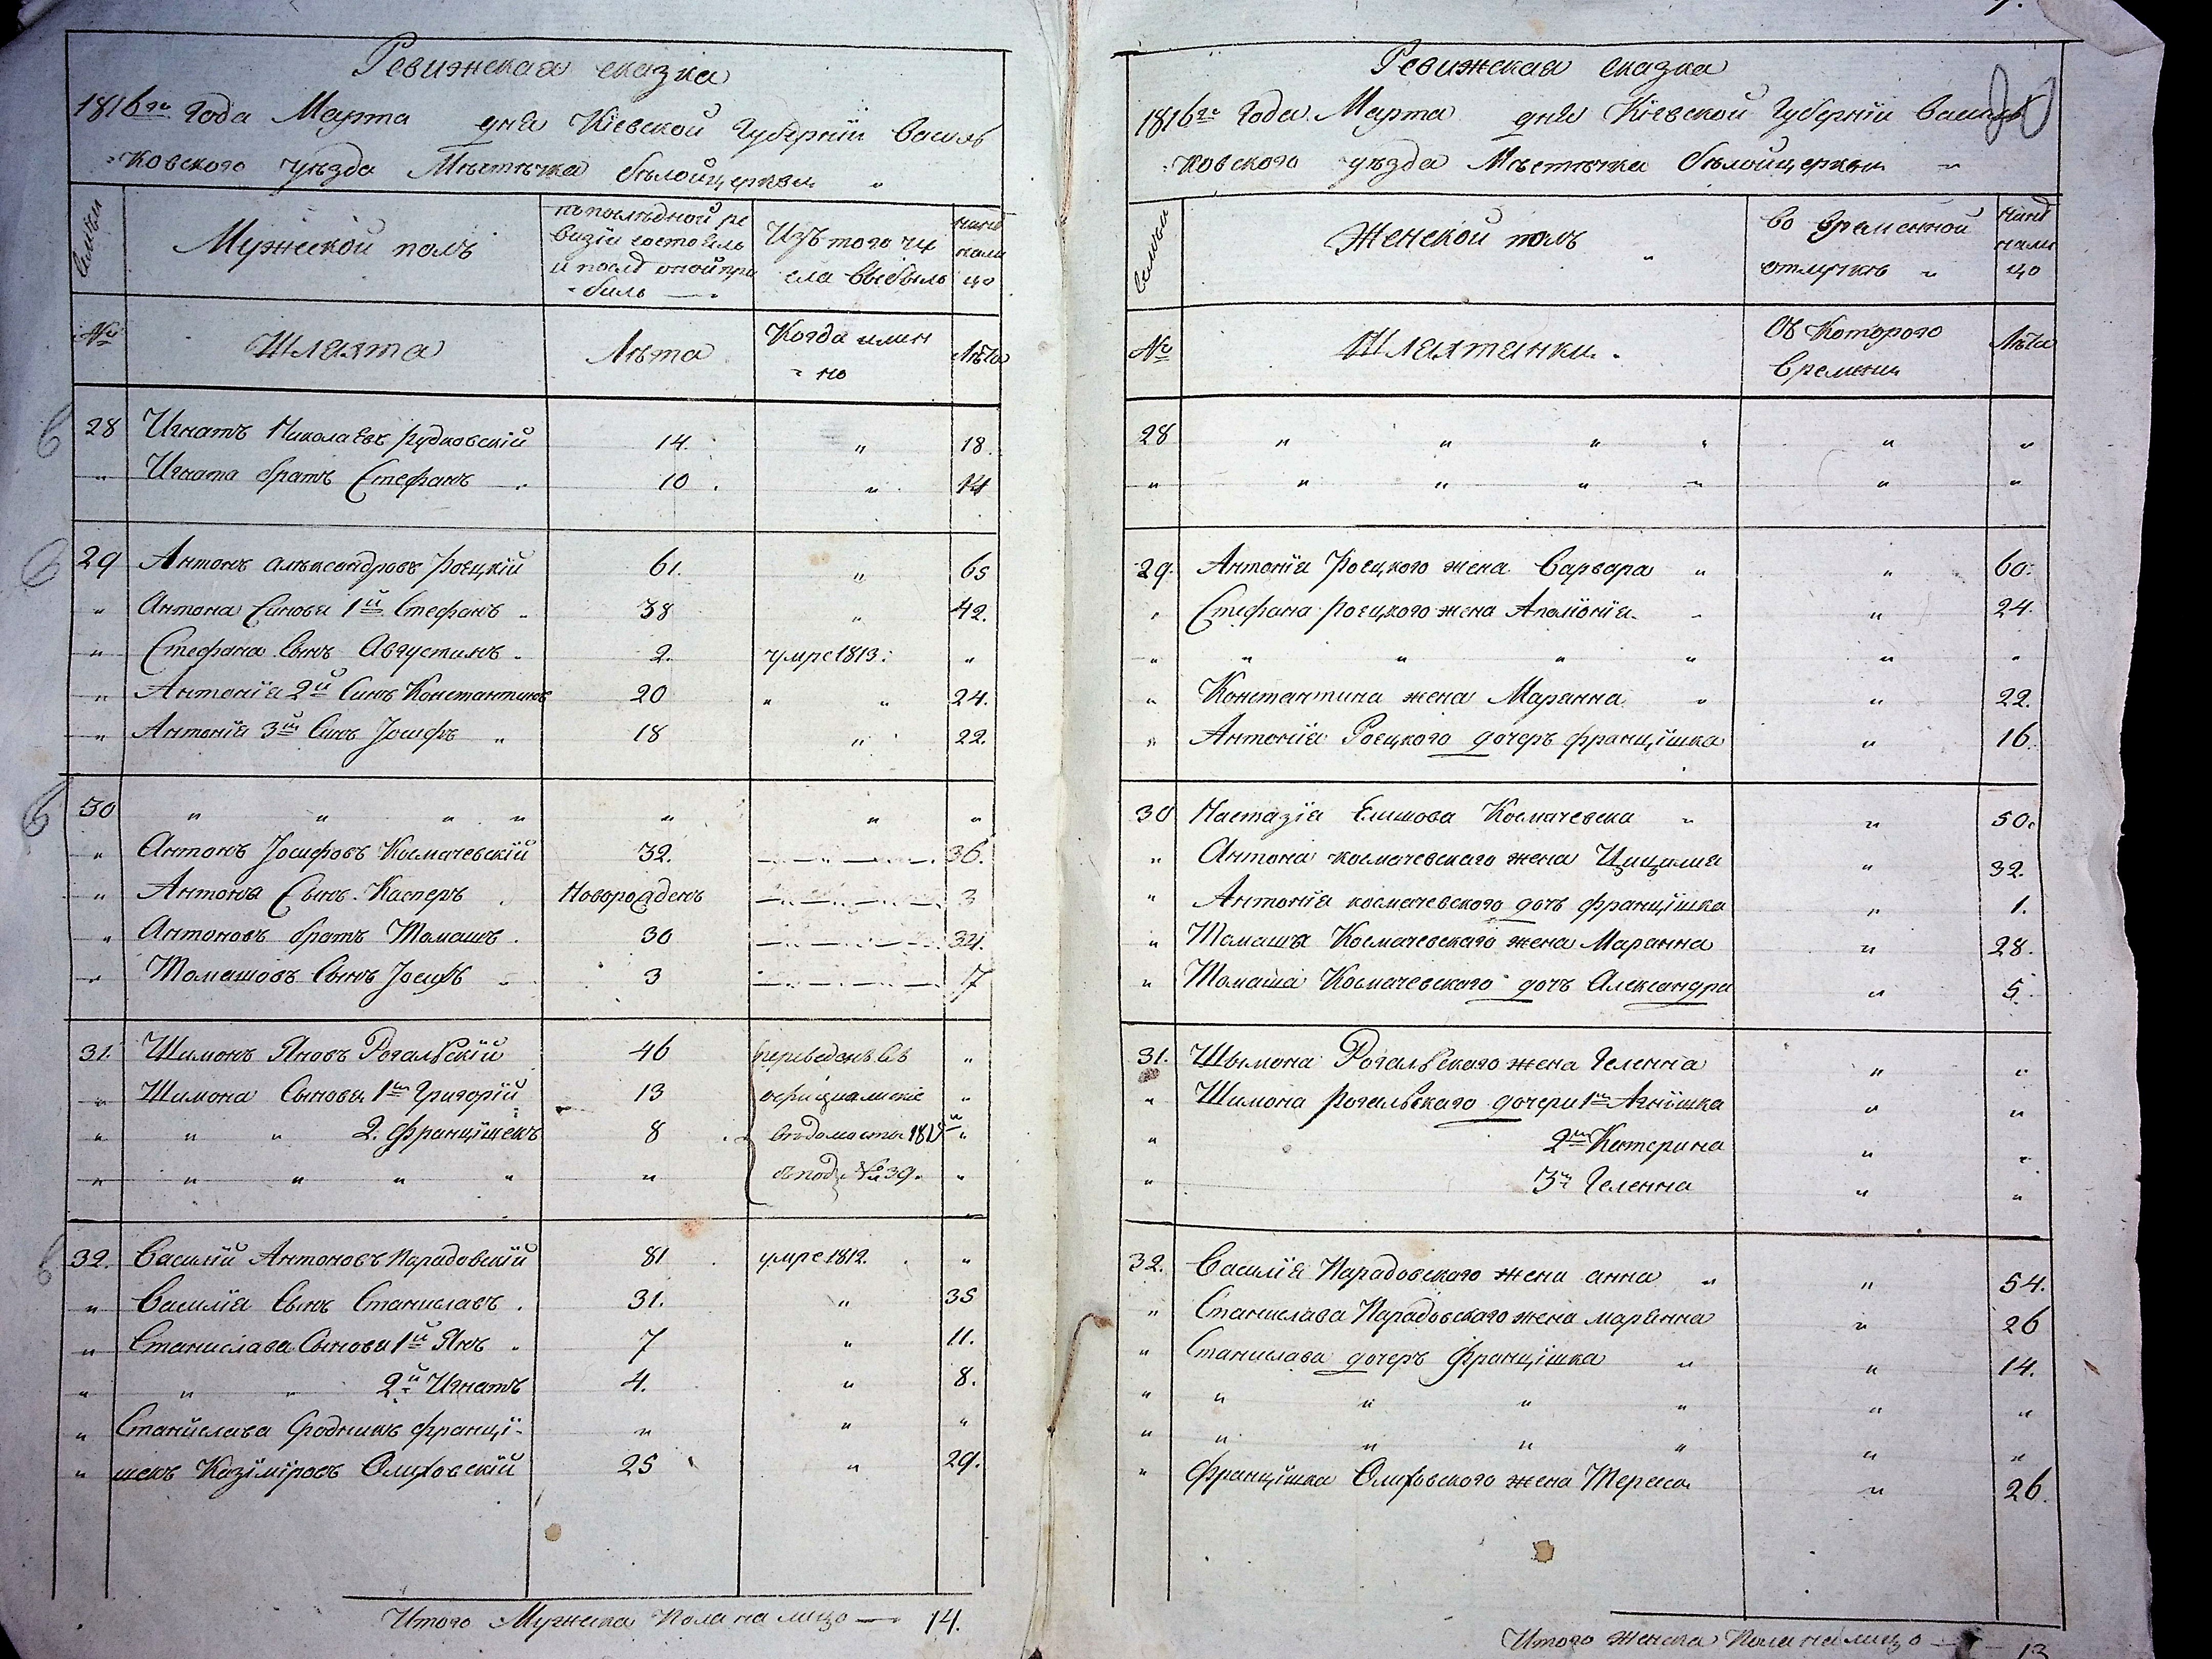 Ревижская сказка
1816го Года Марта дня Кіевской Губерніи Василь
ковского уезда Мѣстѣчка бѣлойцеркви "
Семьи
Мужеской полъ
по последной ре
визіи состоялъ
и послѣ оной при
былъ
Изъ того чи
сла выбыло
нынѣ
нали
цо
№
Шляхта
Лѣта
Когда имен
но
Лѣта
28 Игнатъ Николаевъ Рудковскій 14. " 18.
" Игната братъ Стефанъ 10. " 14
29 Антонъ александровъ Роецкій 61. " 65
" Антона Синови 1й Стефанъ 38 " 42.
" Стефана Сынъ Августинъ 2. умре 1813. "
" Антонія 2й Синъ Константинъ 20 " " 24.
" Антонія 3й Синъ Іосифъ " 18 " 22.
30 " " " " " " "
" Антонъ Іосифовъ Космачевскій 32. 36.
" Антона Сынъ Касперъ Новорожденъ 3
" Антоновъ братъ Томашъ 30 34.
" Томашовъ Сынъ Іосифъ 3 7
31. Шимонъ Яновъ Рогальскій 46 переведенъ въ "
" Шимона Сынови 1й Григорій 13 офиціалскіе "
" " " 2. францишекъ 8 вѣдомости "
" " " " " " подъ № 39. "
32. Василій Антоновъ Парадовскій 81 умре 1812. "
" Василія Сынъ Станиславъ 31. " 35
" Станислава Сынови 1й Янъ 7 " 11.
" " " 2й Игнатъ 4. " 8.
" Станислава Сродникъ франци- " " "
" шекъ Казіміровъ Олиховскій 25 " 29.
Итого Мужеска Пола на лицо — 14.
Ревижская сказка
1816го Года Марта дня Кіевской Губерніи Василь
ковского уезда Мѣстѣчка бѣлойцеркви "
Семьи
Женской полъ
во временной
отлучкѣ "
нынѣ
нали
цо
№
Шляхтянки.
Съ Которого
времени
Лѣта
28 " " " " " "
" " " " " " "
29. Антонія Роецкого жена Варвара " " 60.
" Стефана Роецкого жена Аполіонія " 24.
" " " " " " "
" Константина жена Марянна " " 22.
" Антонія Роецкого дочеръ францішка " 16.
30 Настазія Космачевска " " 50.
" Антона космачевскаго жена Цицилія " 32.
" Антонія космачевского дочъ францішка " 1.
" Томаша Космачевскаго жена Марянна " 28.
" Томаша Космачевского дочъ Александра " 5.
31. Шымона Рогальскаго жена Геленна " "
" Шимона Рогальскаго дочери 1я Агнішка " "
" 2я Катерина " "
" 3я Геленна " "
32. Василія Парадовскаго жена анна " " 54.
" Станислава Парадовскаго жена марянна " 26
" Станислава дочеръ францішка " " 14.
" " " " " " "
" " " " " " "
" францішка Олиховского жена Тереса " 26.
Итого Женска Пола на лицо — 13